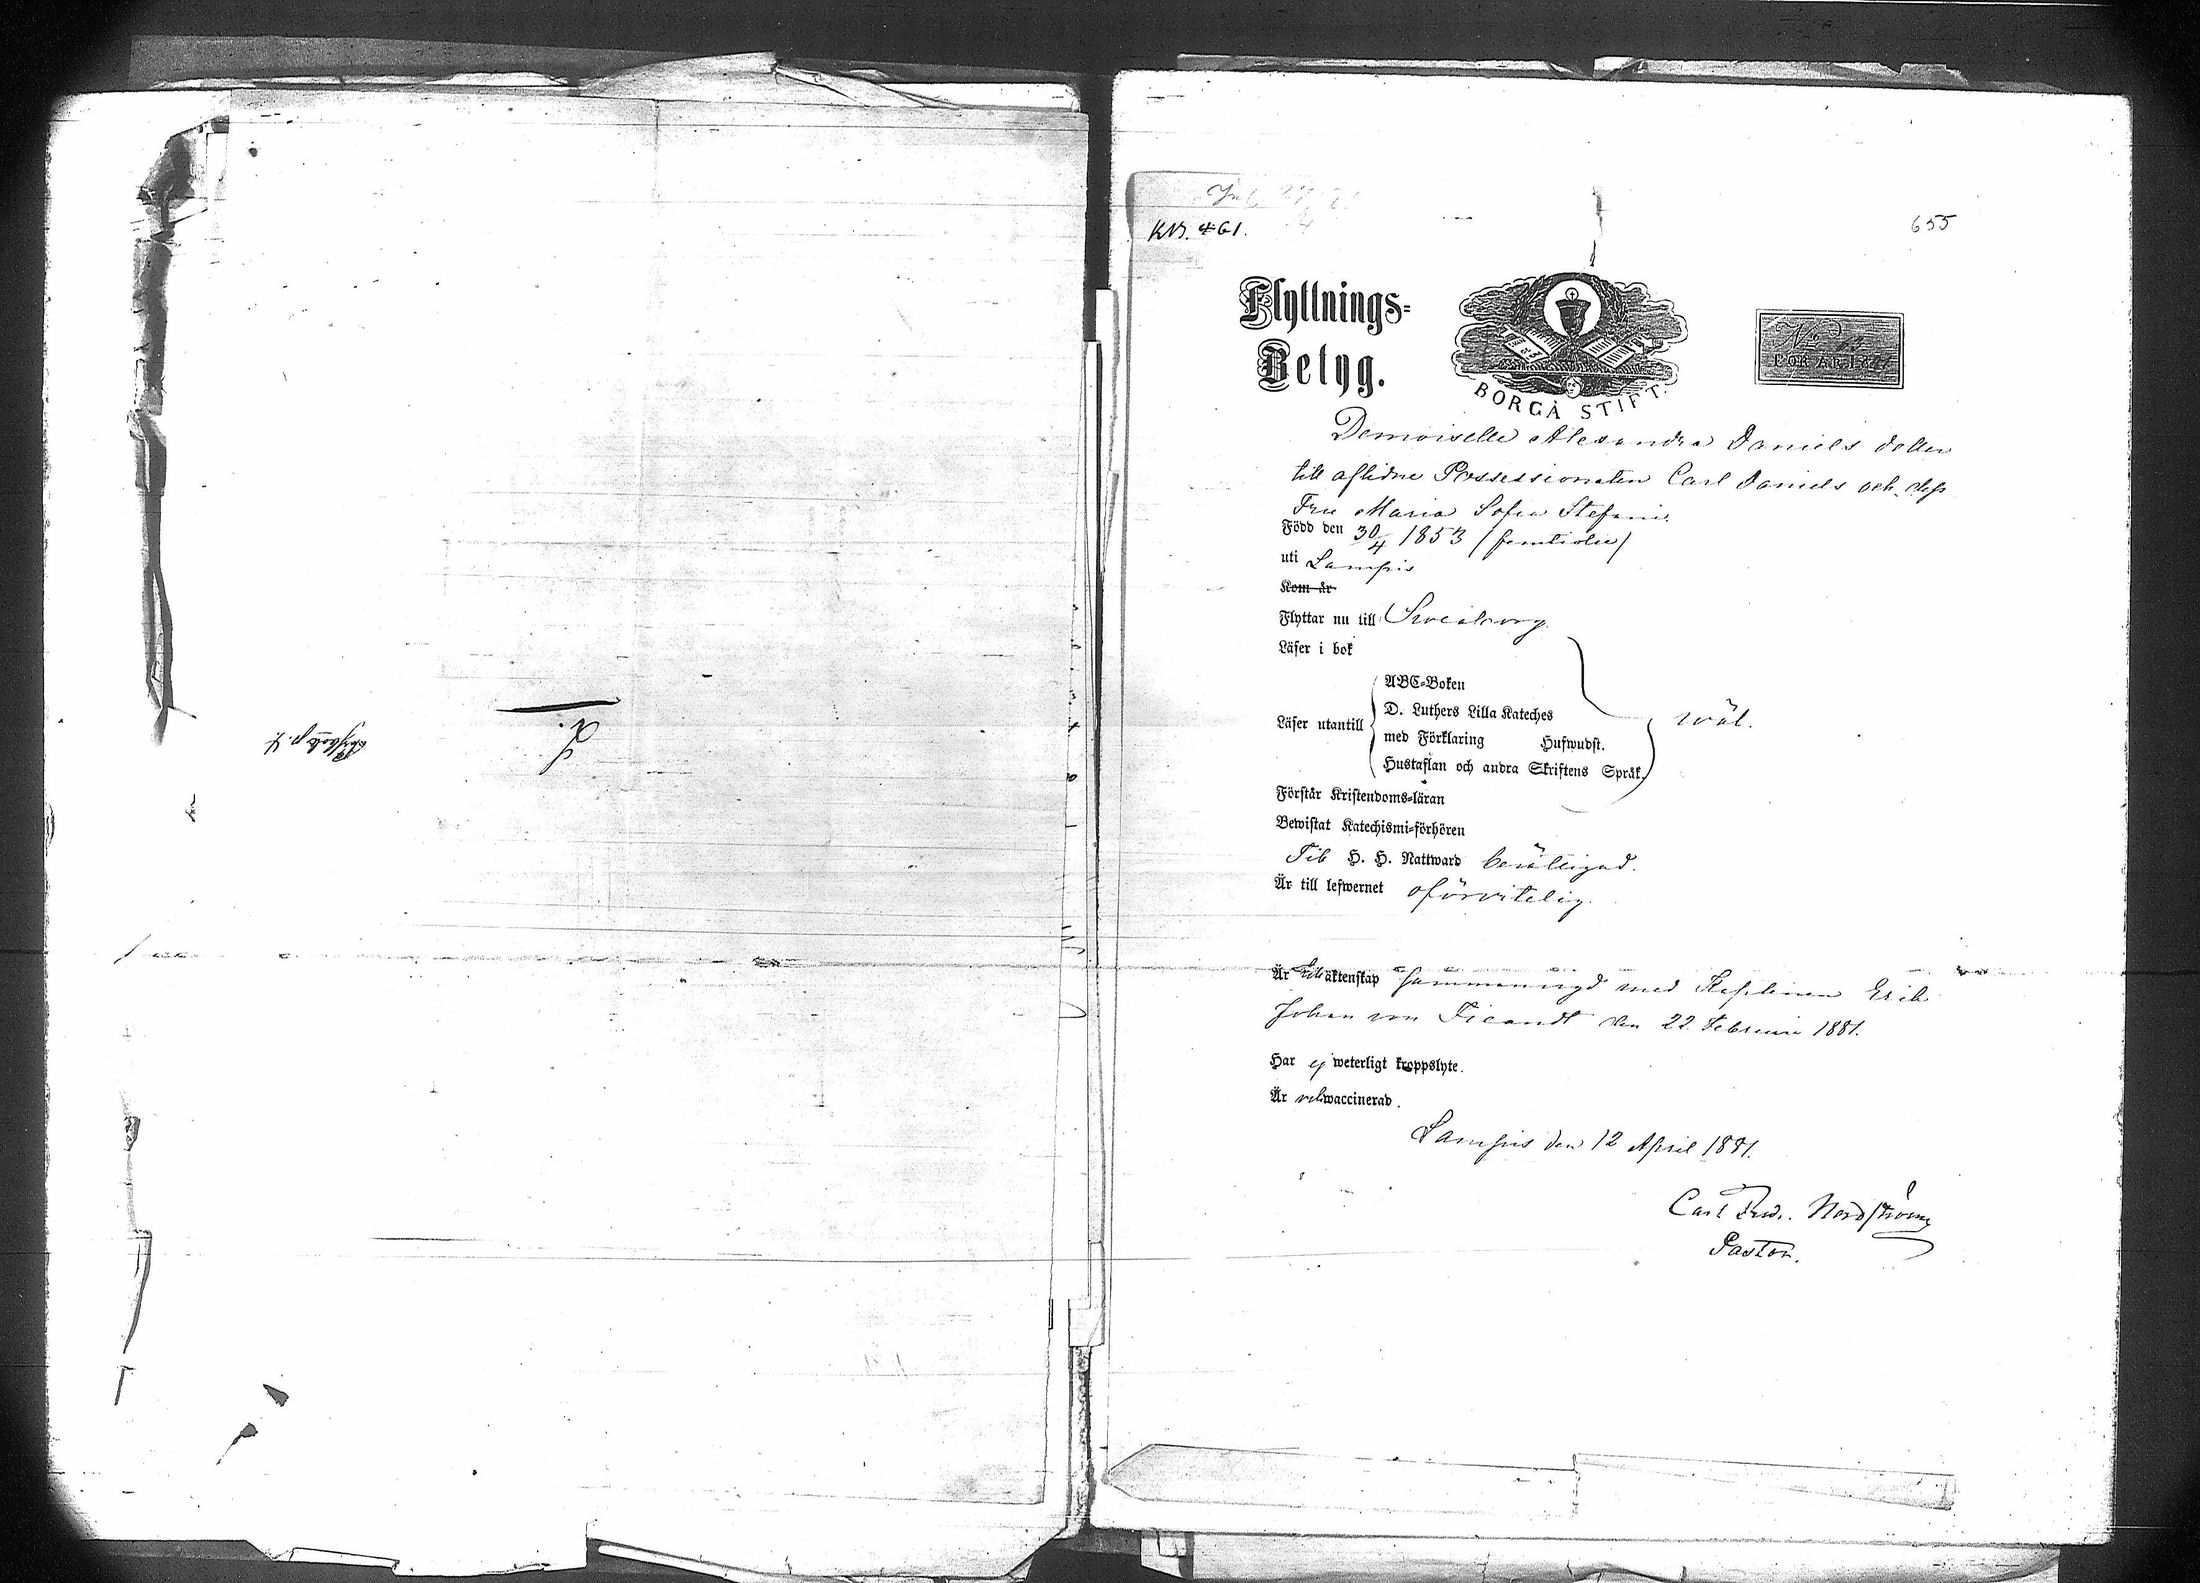 L.
KB. 461.
655
Flyttnings-
Betyg.
BORGÅ STIFT.
No 43
FÖR ÅR 1881
Demoiselle Alexandra Daniels dotter
till aflidne Possessionaten Carl Daniels och dess
Fru Maria Sofia Stefani.
Född den 30/4 1853 /femtiotre/
uti Lampis
Kom år
Flyttar nu till Sveaborg.
Läser i bok
Läser utantill
ABC-Boken
D. Luthers Lilla Kateches
med Förklaring Hufwudst.
Hustaflan och andra Skriftens Språk.
wäl.
Förstår Kristendoms-läran
Bewistat Katechismi-förhören
Till H. H. Nattward berättigad.
Är till lefwernet oförvitelig.
Är till äktenskap sammanvigd med Kaptenen Erik
Johan von Ficandt den 22 Februari 1881.
Har ej weterligt kroppslyte.
Är vel waccinerad.
Lampis den 12 April 1881.
Carl Fredr. Nordström
Pastor.